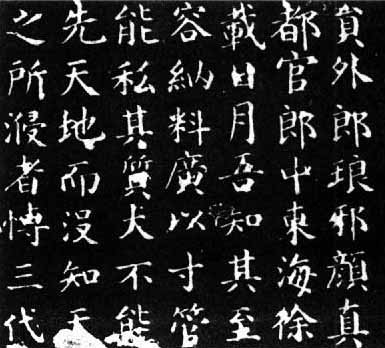 員外郎琅邪顏真
都官郎中東海徐
載日月吾知其至
容納料廣以寸管
能私其質犬不能
先天地而没知天
之所浸者愽三代